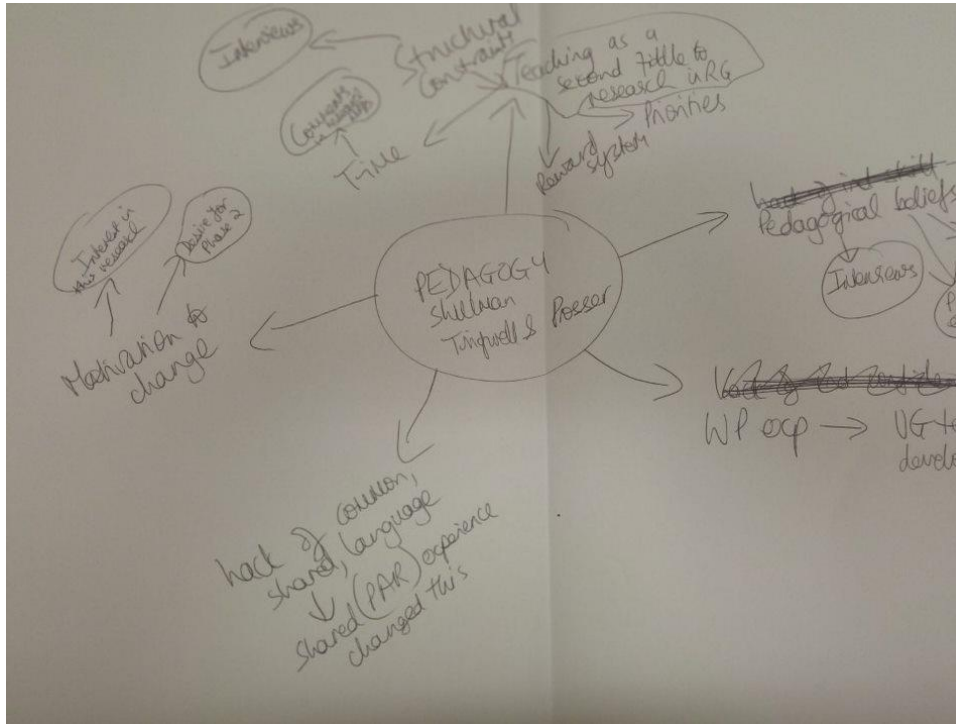 Interviews
Structural
constraints
Teaching as a
second fiddle to
research in RG
Priorities
Reward
system
Comments
Time
Interest in
this research
Desire for
Phase 2
Motivation to
change
PEDAGOGY
Shulman
Trigwell & Prosser
Lack of ind skill
Pedagogical beliefs
Interviews
P
WP exp → UG te
develo
Lack of common,
shared, language
↓
shared (PAR) experience
changed this